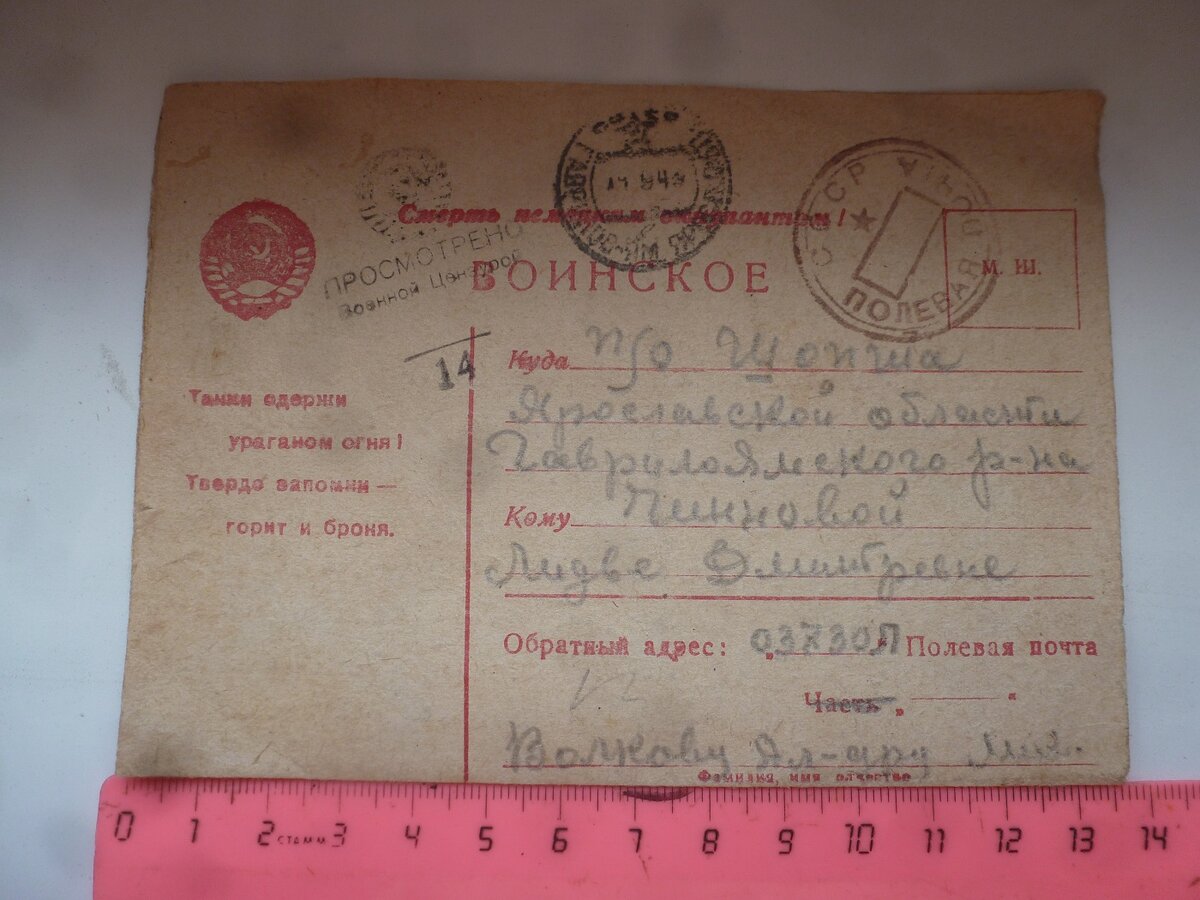 Смерть немецким оккупантам!
ПРОСМОТРЕНО
Военной Цензурой
14
ВОИНСКОЕ
СССР
ПОЛЕВАЯ ПОЧТА
М. Ш.
Танки одержи
ураганом огня!
Твердо запомни —
горит и броня.
Куда п/о Щопша
Ярославской области
ГаврилоЯмского р-на
Кому
Дмитревне
Обратный адрес: „03730Л“ Полевая почта
Часть „ “
Волкову Ал-дру Мих.
Фамилия, имя отчество
0 1 2 СТАММ 3 4 5 6 7 8 9 10 11 12 13 14